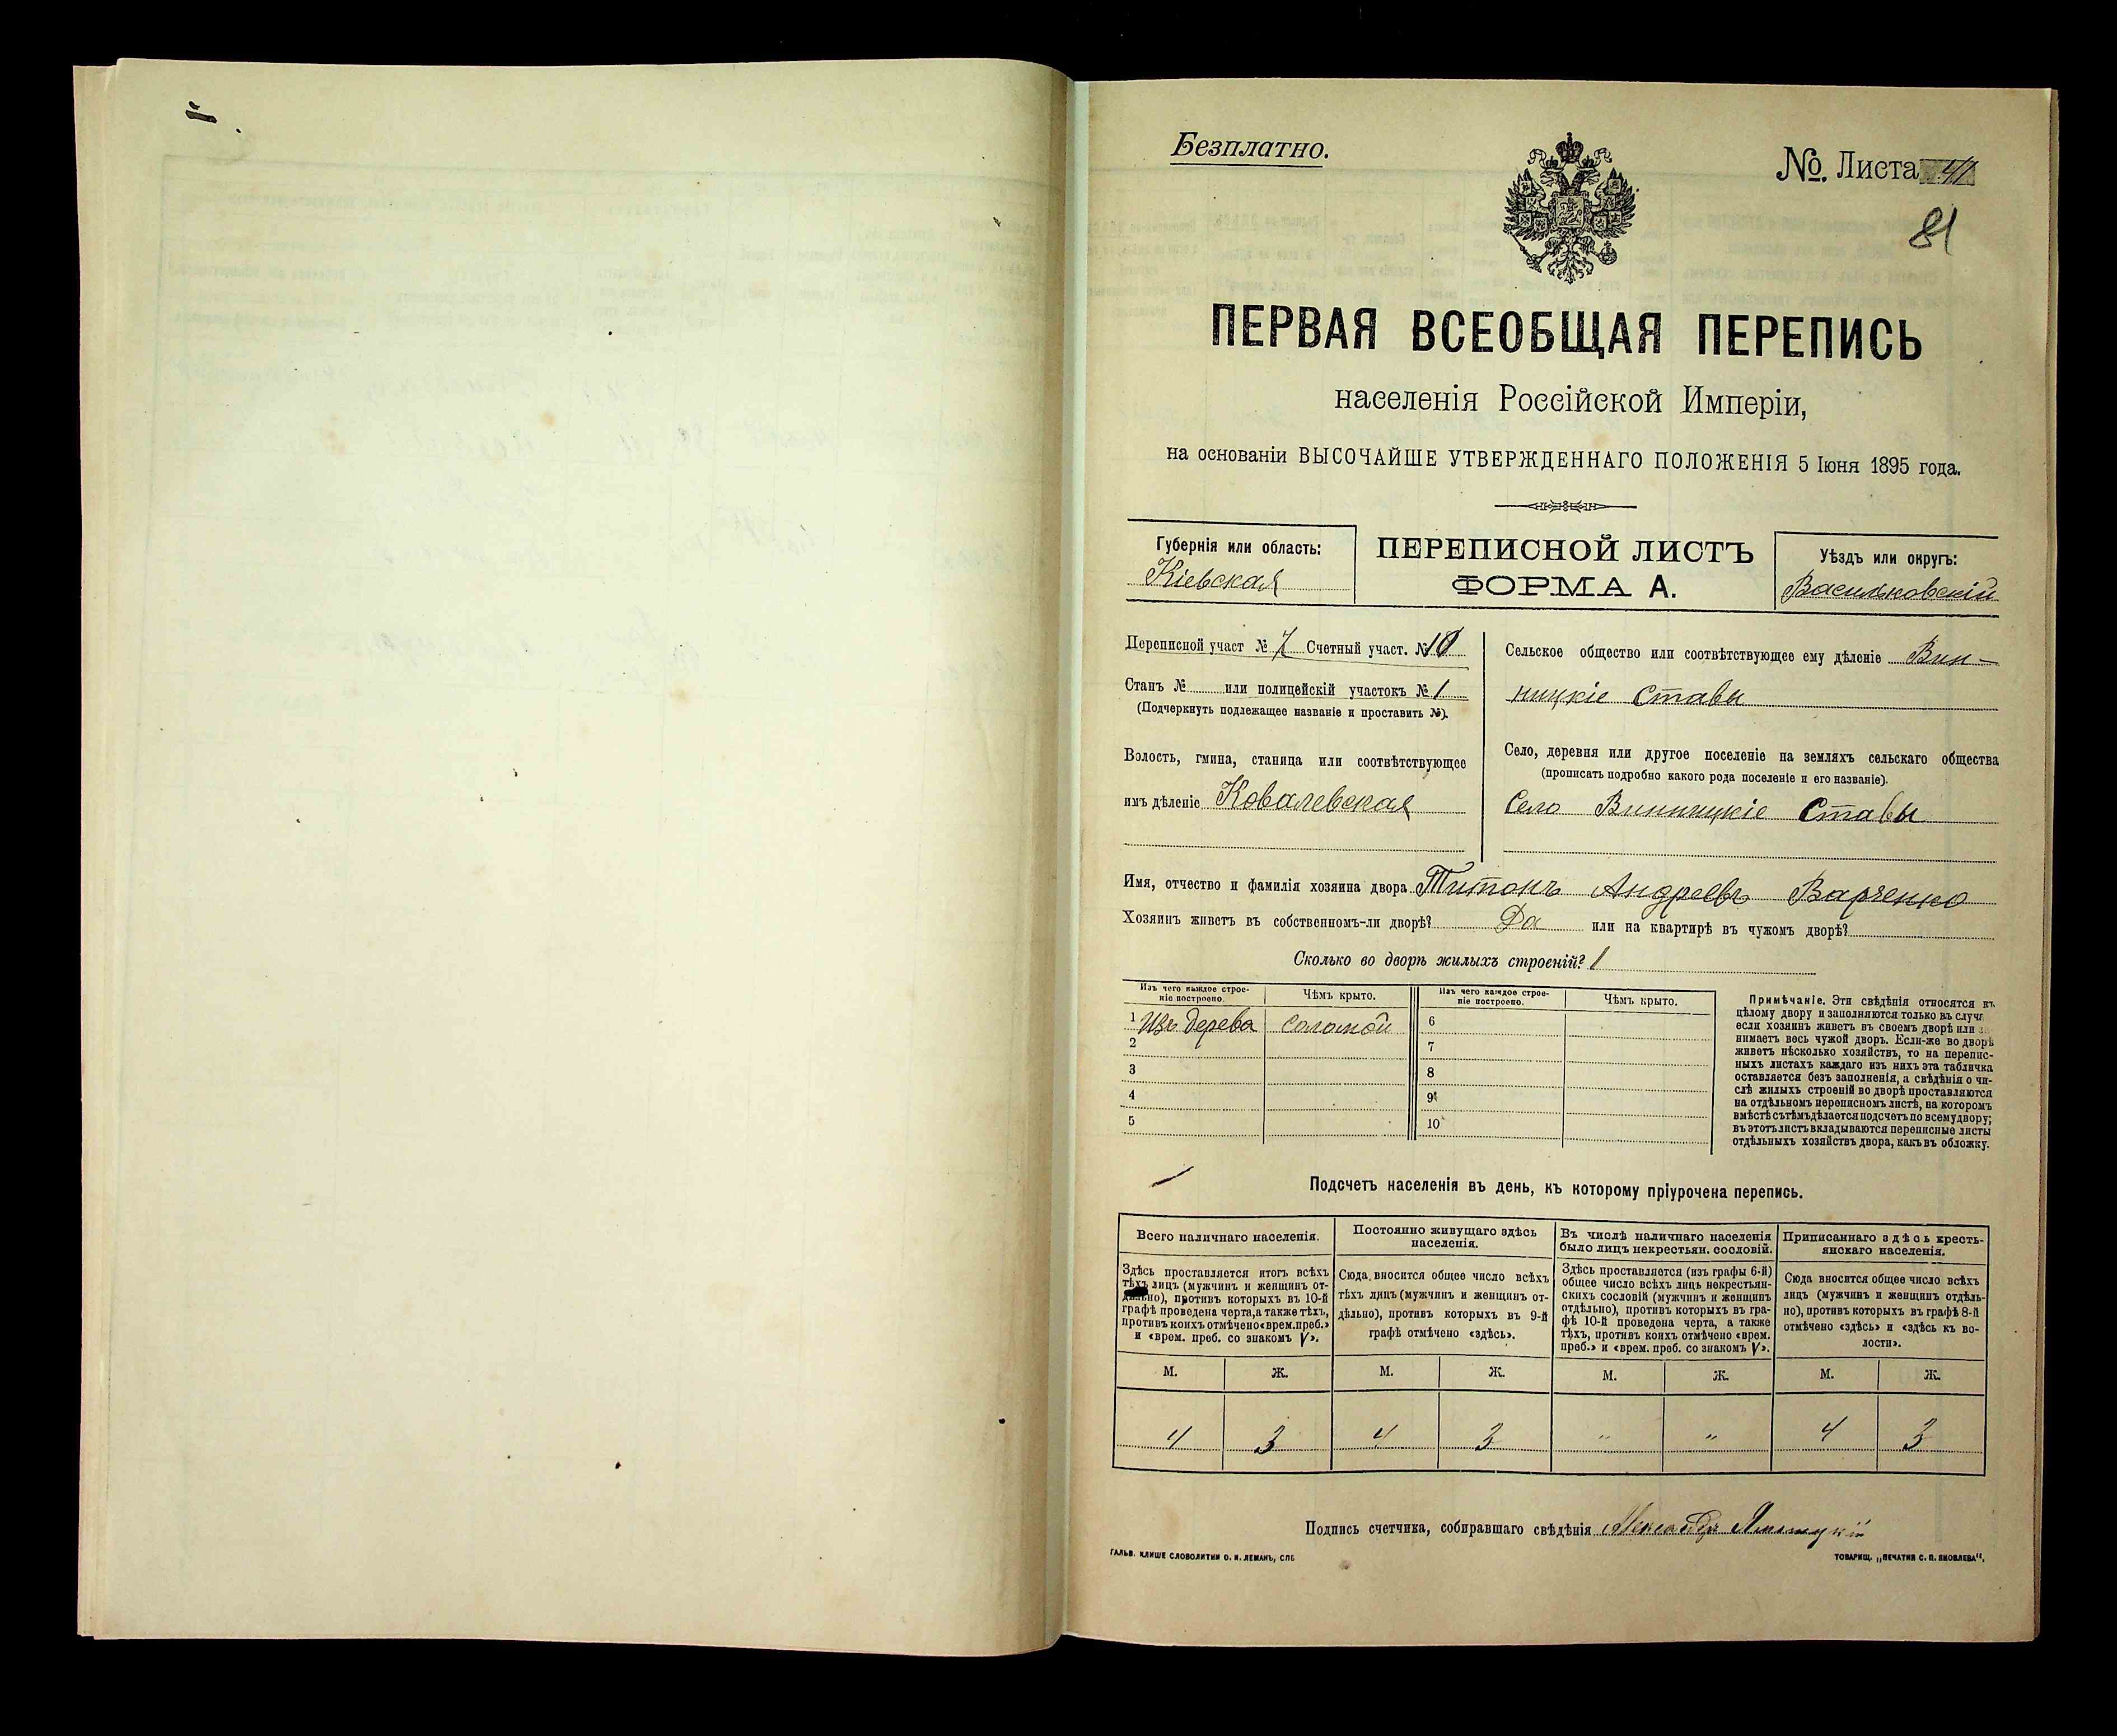 Безплатно.
№ Листа 41
81
ПЕРВАЯ ВСЕОБЩАЯ ПЕРЕПИСЬ
населенія Россійской Имперіи,
на основаніи ВЫСОЧАЙШЕ УТВЕРЖДЕННАГО ПОЛОЖЕНІЯ 5 Іюня 1895 года.
Губернія или область:
Кіевская
ПЕРЕПИСНОЙ ЛИСТЪ
ФОРМА А.
Уѣздъ или округъ:
Васильковскій
Переписной участ № 7 Счетный участ. № 10
Станъ № или полицейскій участокъ № 1
(Подчеркнуть подлежащее названіе и проставить №).
Волость, гмина, станица или соотвѣтствующее
имъ дѣленіе Ковалевская
Сельское общество или соотвѣтствующее ему дѣленіе Вин-
ницкіе Ставы
Село, деревня или другое поселеніе на земляхъ сельскаго общества
(прописать подробно какого рода поселеніе и его названіе).
Село Винницкіе Ставы
Имя, отчество и фамилія хозяина двора Титонъ Андреевъ Варченко
Хозяинъ живетъ въ собственномъ-ли дворѣ? Да или на квартирѣ въ чужомъ дворѣ?
Сколько во дворѣ жилыхъ строеній? 1
Изъ чего каждое строе-
ніе построено.
Чѣмъ крыто.
Изъ чего каждое строе-
ніе построено.
Чѣмъ крыто.
1 Изъ дерева соломой 6
2 7
3 8
4 9
5 10
Примѣчаніе. Эти свѣдѣнія относятся къ
цѣлому двору и заполняются только въ случа
если хозяинъ живетъ въ своемъ дворѣ или за
нимаетъ весь чужой дворъ. Если-же во дворѣ
живетъ нѣсколько хозяйствъ, то на перепис-
ныхъ листахъ каждаго изъ нихъ эта табличка
оставляется безъ заполненія, а свѣдѣнія о чи-
слѣ жилыхъ строеній во дворѣ проставляются
на отдѣльномъ переписномъ листѣ, на которомъ
вмѣстѣ съ тѣмъ дѣлается подсчетъ по всему двору;
въ этотъ листъ вкладываются переписные листы
отдѣльныхъ хозяйствъ двора, какъ въ обложку.
Подсчетъ населенія въ день, къ которому пріурочена перепись.
Всего наличнаго населенія.
Здѣсь проставляется итогъ всѣхъ
тѣхъ лицъ (мужчинъ и женщинъ от-
дѣльно), противъ которыхъ въ 10-й
графѣ проведена черта, а также тѣхъ,
противъ коихъ отмѣчено «врем. преб.»
и «врем. преб. со знакомъ V».
Постоянно живущаго здѣсь
населенія.
Сюда вносится общее число всѣхъ
тѣхъ лицъ (мужчинъ и женщинъ от-
дѣльно), противъ которыхъ въ 9-й
графѣ отмѣчено «здѣсь».
Въ числѣ наличнаго населенія
было лицъ некрестьян. сословій.
Здѣсь проставляется (изъ графы 6-й)
общее число всѣхъ лицъ некрестьян-
скихъ сословій (мужчинъ и женщинъ
отдѣльно), противъ которыхъ въ гра-
фѣ 10-й проведена черта, а также
тѣхъ, противъ коихъ отмѣчено «врем.
преб.» и «врем. преб. со знакомъ V».
Приписаннаго здѣсь кресть-
янскаго населенія.
Сюда вносится общее число всѣхъ
лицъ (мужчинъ и женщинъ отдѣль-
но), противъ которыхъ въ графѣ 8-й
отмѣчено «здѣсь» и «здѣсь къ во-
лости».
М. Ж. М. Ж. М. Ж. М. Ж.
4 3 4 3 " " 4 3
Подпись счетчика, собиравшаго свѣдѣнія Александръ
ГАЛЬВ. КЛИШЕ СЛОВОЛИТНИ О. И. ЛЕМАНЪ, СПБ
ТОВАРИЩ. „ПЕЧАТНЯ С. П. ЯКОВЛЕВА“.